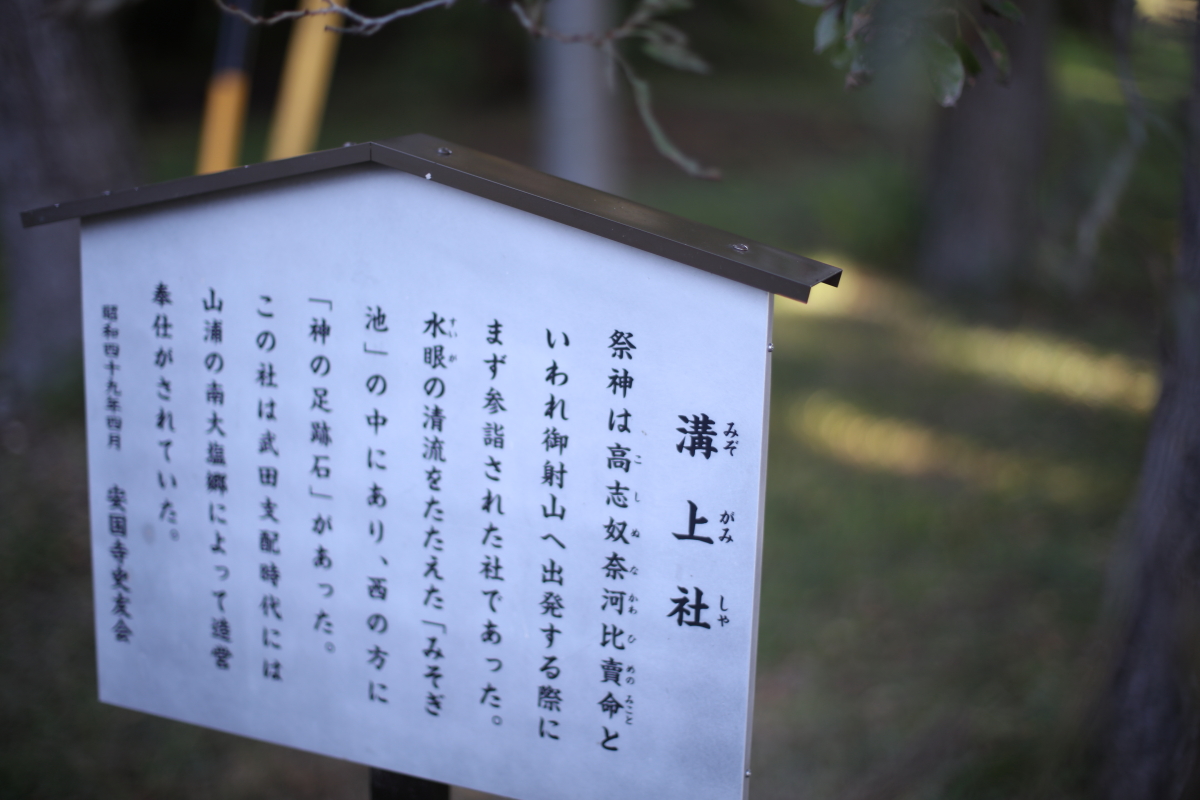 溝上社
みぞがみしや
祭神は高志奴奈河比賣命と
こしぬなかわひめのみこと
いわれ御射山へ出発する際に
まず参詣された社であった。
水眼の清流をたたえた「みそぎ
すいが
池」の中にあり、西の方に
「神の足跡石」があった。
この社は武田支配時代には
山浦の南大塩郷によって造営
奉仕がされていた。
昭和四十九年四月 安国寺史友会